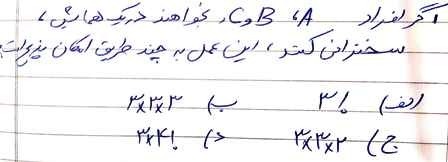 اگر افراد A، B و C، بخواهند در یک همایش،
سخنرانی کنند، این عمل به چند طریق امکان پذیر است
الف) ۳! ب) ۳×۳×۳
ج) ۳×۳×۲ د) ۳×۴!